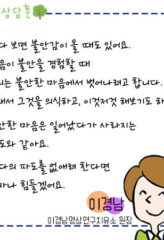 상담톤
다 보면 불안감이 올 때도 있어요.
음이 불안을 경험할 때
는 불안한 마음에서 벗어나려고 합니다.
래서 그것을 의식하고, 이것저것 해보기도 하
한 마음은 일어났다가 사라지는
도와 같아요.
다의 파도를 없애려 한다면
마나 힘들겠어요.
이경남
이경남명상연구치유소 원장